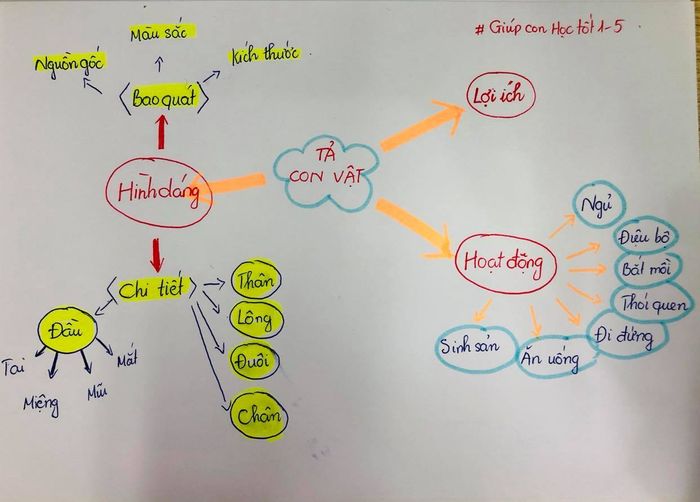 # Giúp con Học tốt 1-5
Màu sắc
Nguồn gốc
Kích thước
Bao quát
Lợi ích
TẢ
CON VẬT
Hình dáng
Ngủ
Điệu bộ
Bắt mồi
Thói quen
Đi đứng
Ăn uống
Sinh sản
Hoạt động
Chi tiết
Thân
Lông
Đuôi
Chân
Đầu
Tai
Miệng
Mũi
Mắt